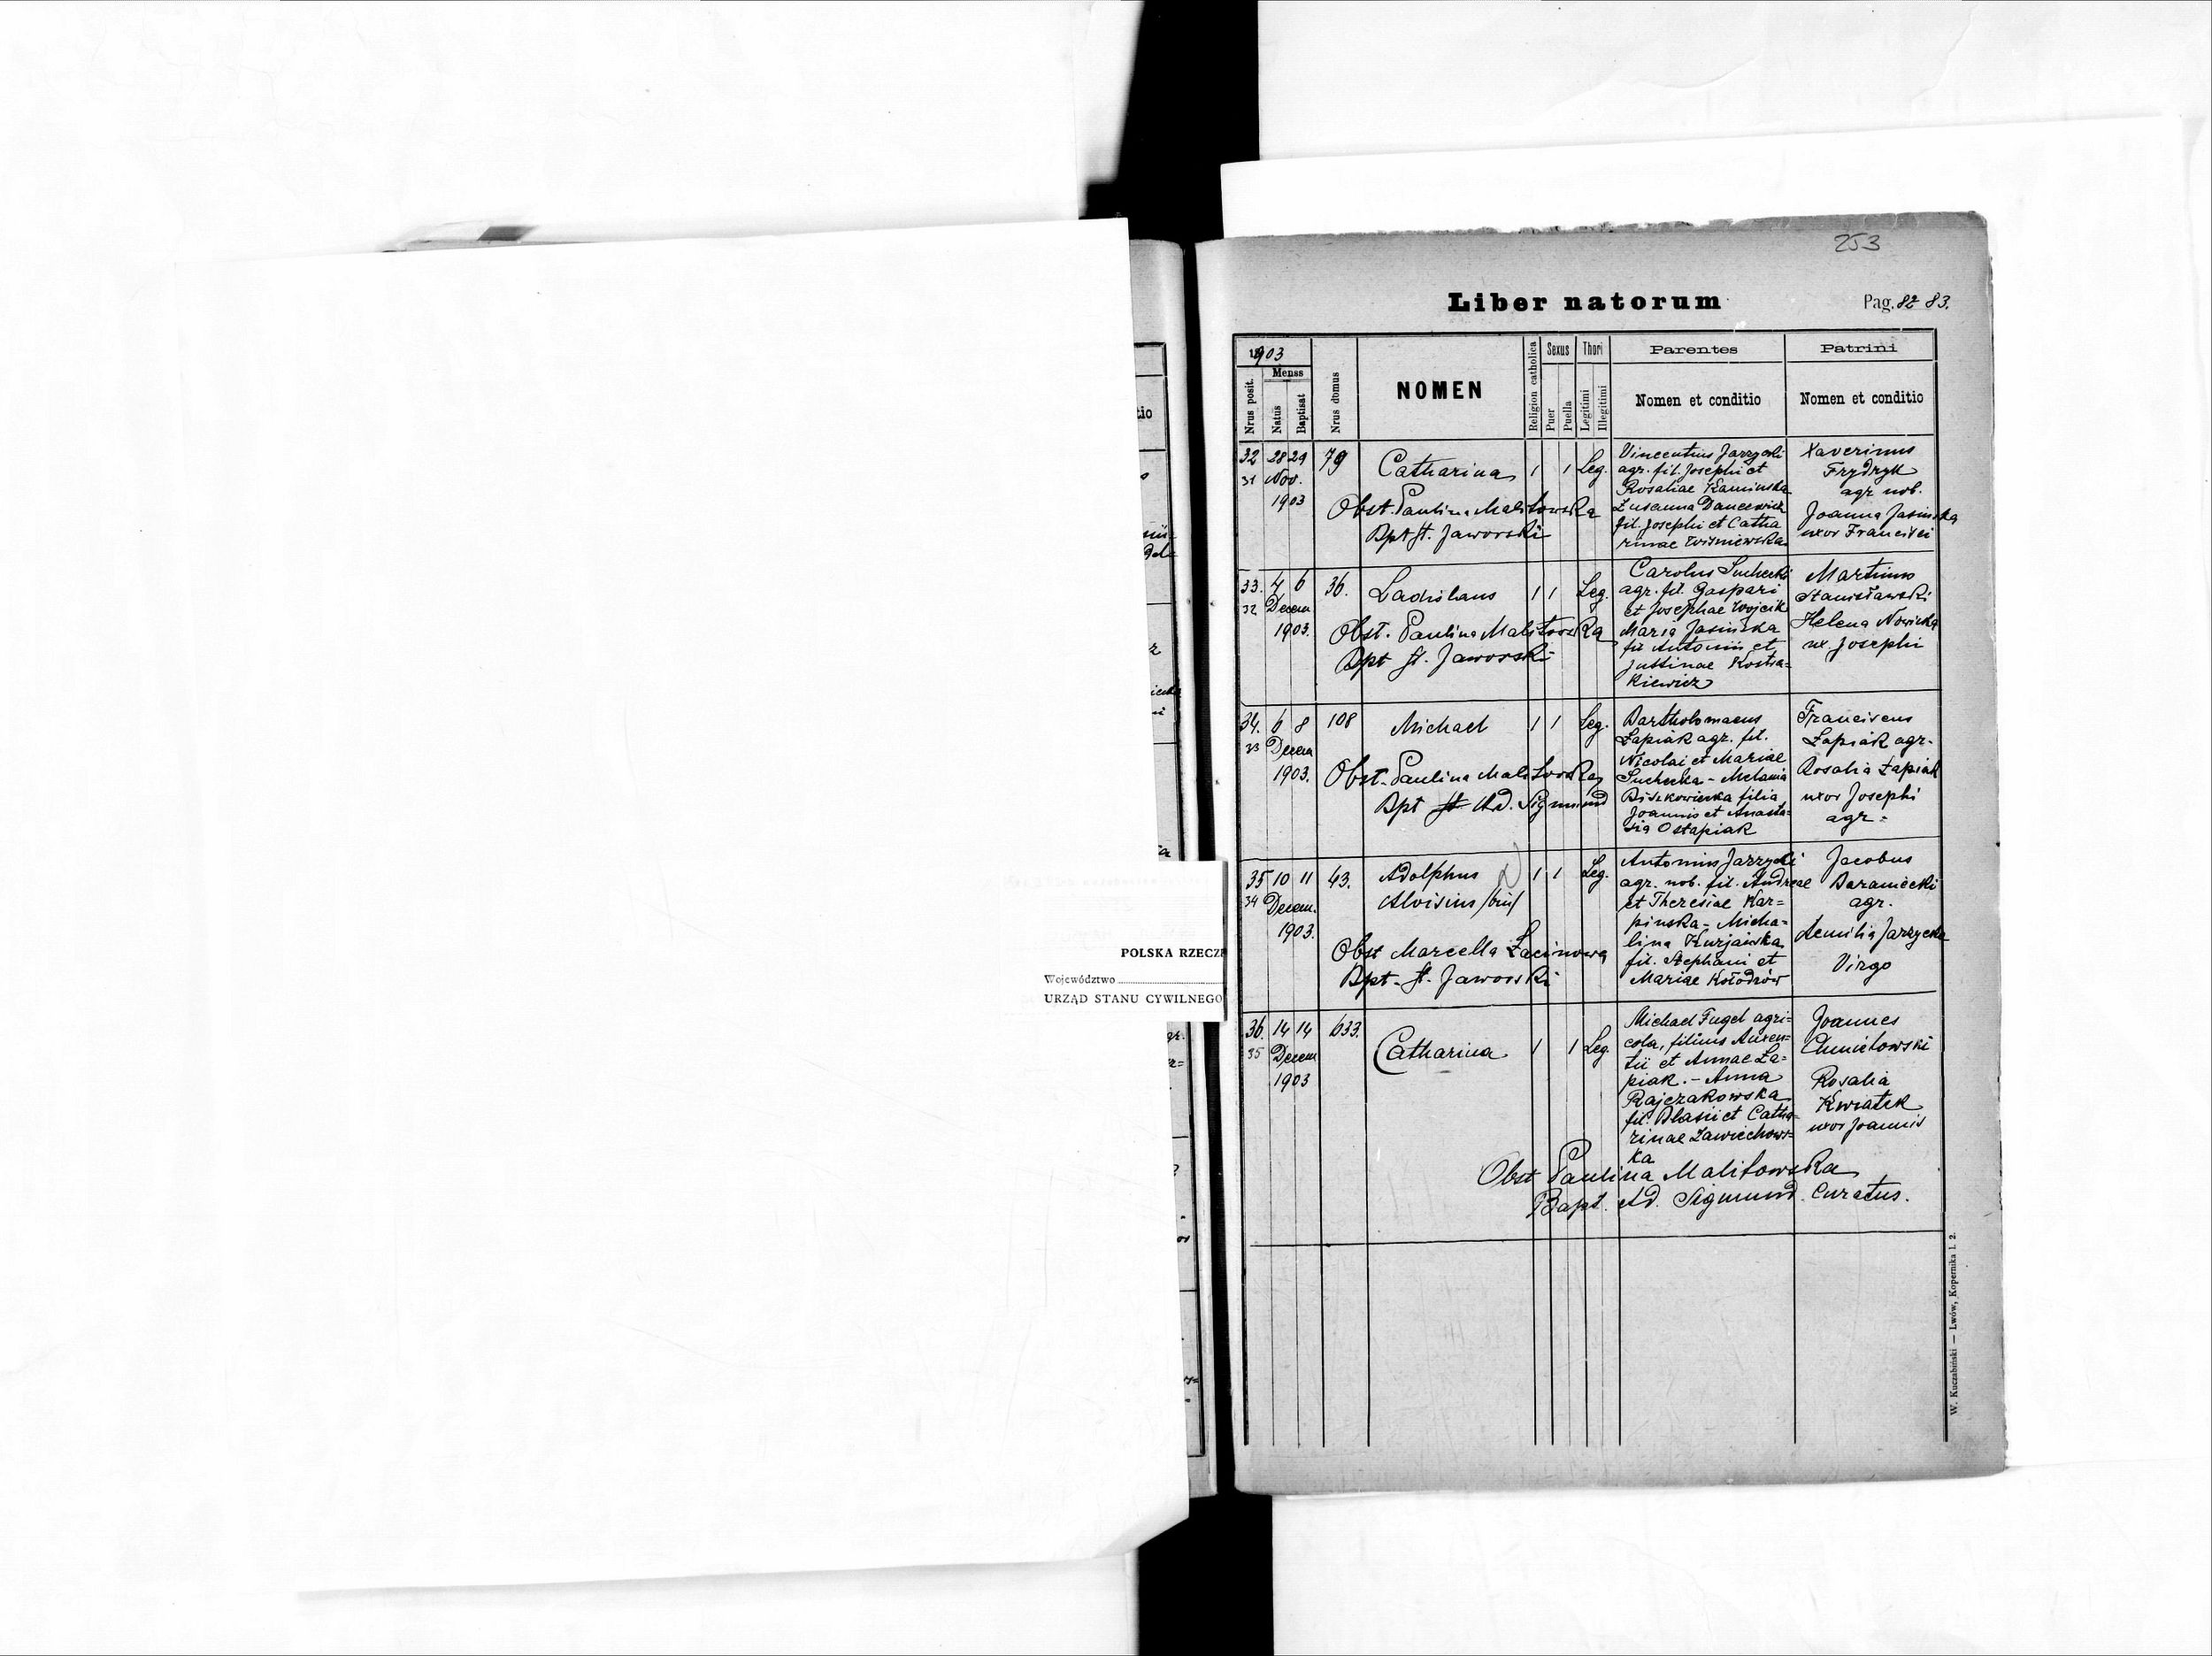 253
Liber natorum
Pag. 82 83.
1903
Menss
Nrus posit.
Natus
Baptisat
Nrus domus
NOMEN
Religion catholica
Sexus
Puer
Puella
Thori
Legitimi
Illegitimi
Parentes
Nomen et conditio
Patrini
Nomen et conditio
32 28 29 79 Catharina 1 1 Leg.
31 Nov.
1903
Obst. Paulina Malitowska
Bpt St. Jaworski
Vincentius Jarzycki
agr. fil. Josephi et
Rosaliae Kaminska
Zusanna Dancewicz
fil. Josephi et Catha
rinae Wisniewska
Xaverius
Frydryk
agr nob.
Joanna Jasinska
uxor Francisci
33. 4 6 36. Ladislaus 1 1 Leg.
32 Decem
1903.
Obst. Paulina Malitowska
Bpt St. Jaworski
Carolus Suchecki
agr. fil. Gaspari
et Josephae Wojcik
Maria Jasinska
fil Antonii et
Justinae Kostra=
kiewicz
Martinus
Stanisławski
Helena Nowicka
ux. Josephi
34. 6 8 108 Michael 1 1 Leg.
33 Decem
1903.
Obst. Paulina Malitowska
Bpt St. Ad. Sigmund
Bartholomaeus
Łapiak agr. fil.
Nicolai et Mariae
Suchecka - Melania
Biszkowiecka filia
Joannis et Anasta=
sia Ostapiak
Franciscus
Łapiak agr.
Rosalia Łapiak
uxor Josephi
agr.
35 10 11 43. Adolphus 1 1 Leg.
34 Decem.
1903.
Aloisius /bin/
Obst Marcella Łacinowa
Bpt. St. Jaworski
Antonius Jarzycki
agr. nob. fil. Andreae
et Theresiae Kar=
pinska - Micha=
lina Kurjanska
fil. Stephani et
Mariae Kołodrów
Jacobus
Baraniecki
agr.
Aemilia Jarzycka
Virgo
36. 14 14 633. Catharina 1 1 Leg.
35 Decem
1903
Michael Fugel agri=
cola, filius Auxen=
tii et Annae Ła=
piak. - Anna
Rajczakowska
fil. Blasii et Catha=
rinae Zawiechows=
ka
Joannes
Chmielowski
Rosalia
Kwiatek
uxor Joannis
Obst Paulina Malitowska
Bapt. Ad. Sigmund. Curatus.
W. Kuczabiński — Lwów, Kopernika l. 2.
POLSKA RZECZ
Województwo
URZĄD STANU CYWILNEGO